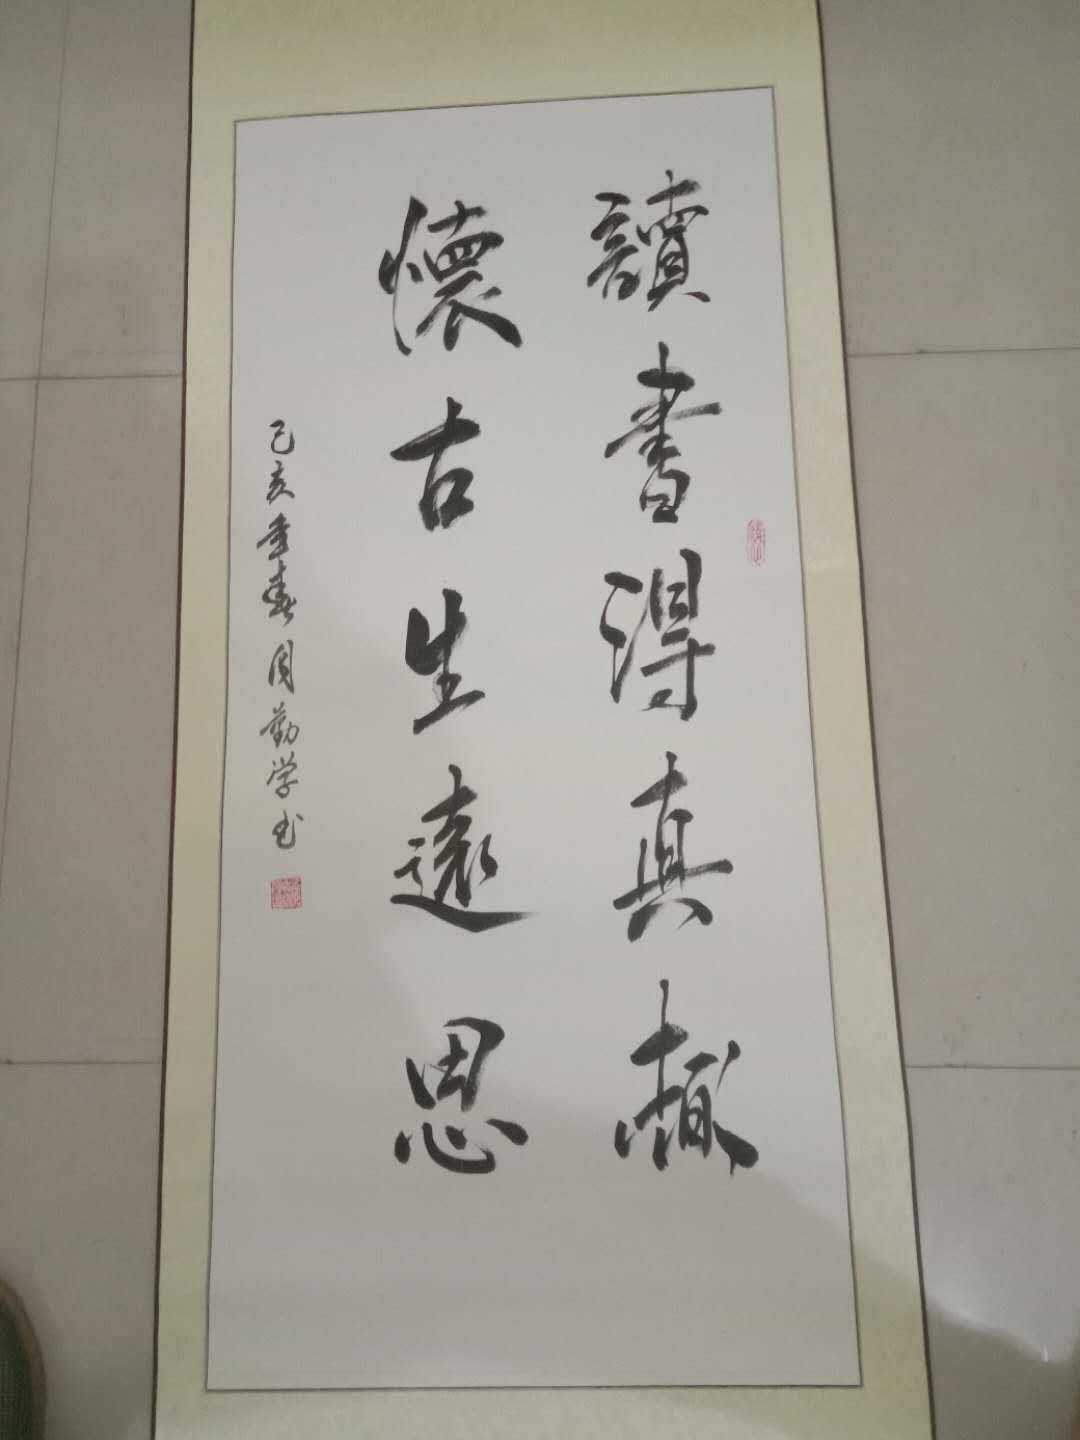 讀書得真趣
懷古生遠思
己亥年春周勤学书